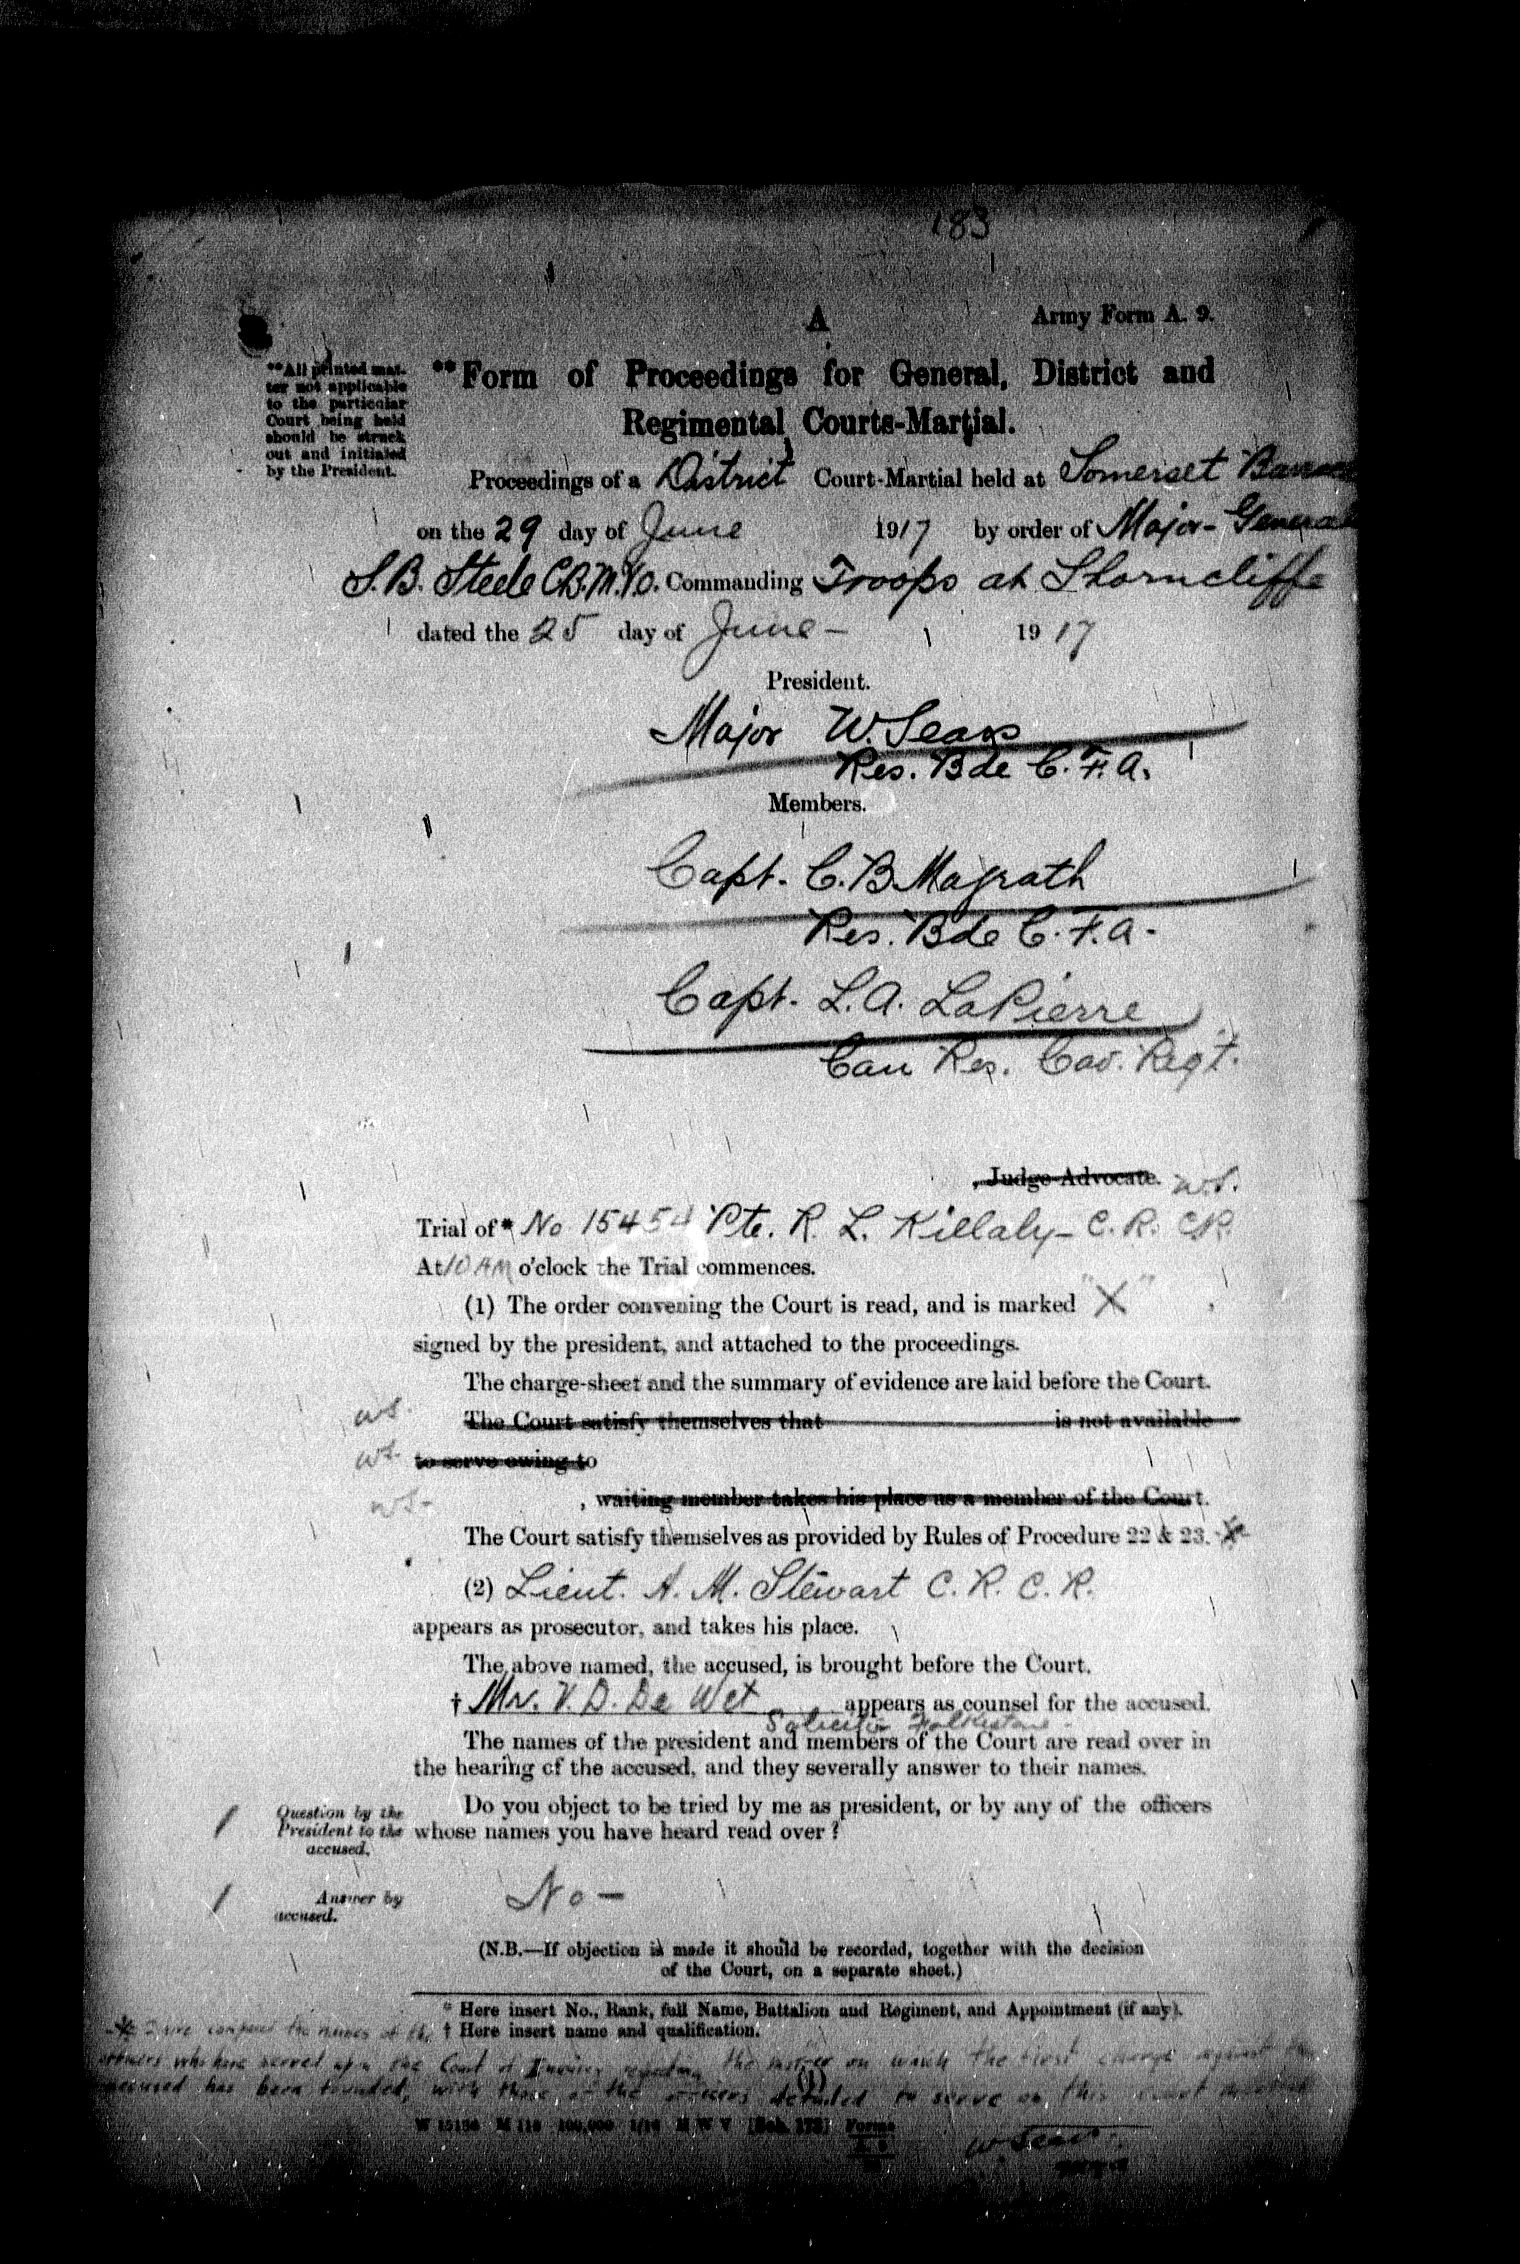 183
A
Army Form A. 9.
**All printed mat-
ter not applicable
to the particular
Court being held
should be struck
out and initialed
by the President.
**Form of Proceedings for General, District and
Regimental Courts-Martial.
Proceedings of a District Court-Martial held at Somerset Barrac
on the 29 day of June 1917 by order of Major-General
S.B. Steele C.B. M.V.O. Commanding Troops at Shorncliffe
dated the 25 day of June - 1917
President.
Major W. Sears
Res. Bde C.F.A.
Members.
Capt. C.B. Magrath
Res. Bde C.F.A.
Capt. L.A. LaPierre
Can Res. Cav. Regt.
, Judge-Advocate. W.S.
Trial of* No 15454 Pte. R. L. Killaly - C. R. C.R.
At 10 AM o'clock the Trial commences.
(1) The order convening the Court is read, and is marked "X"
signed by the president, and attached to the proceedings.
The charge-sheet and the summary of evidence are laid before the Court.
WS. The Court satisfy themselves that is not available
WS. to serve owing to
WS- , waiting member takes his place as a member of the Court.
The Court satisfy themselves as provided by Rules of Procedure 22 & 23.
(2) Lieut. A. M. Stewart C. R. C. R.
appears as prosecutor, and takes his place.
The above named, the accused, is brought before the Court.
† Mr. V. D. De Wet appears as counsel for the accused.
Solicitor Folkestone -
The names of the president and members of the Court are read over in
the hearing of the accused, and they severally answer to their names.
Question by the
President to the
accused.
Do you object to be tried by me as president, or by any of the officers
whose names you have heard read over?
Answer by
accused.
No -
(N.B.—If objection is made it should be recorded, together with the decision
of the Court, on a separate sheet.)
* Here insert No., Rank, full Name, Battalion and Regiment, and Appointment (if any).
† Here insert name and qualification.
I have compared the names of the
officers who have served upon the Court of Inquiry regarding the matter on which the first charge against the
accused has been founded, with those of the officers detailed to serve on this court martial
(1)
W. Sears